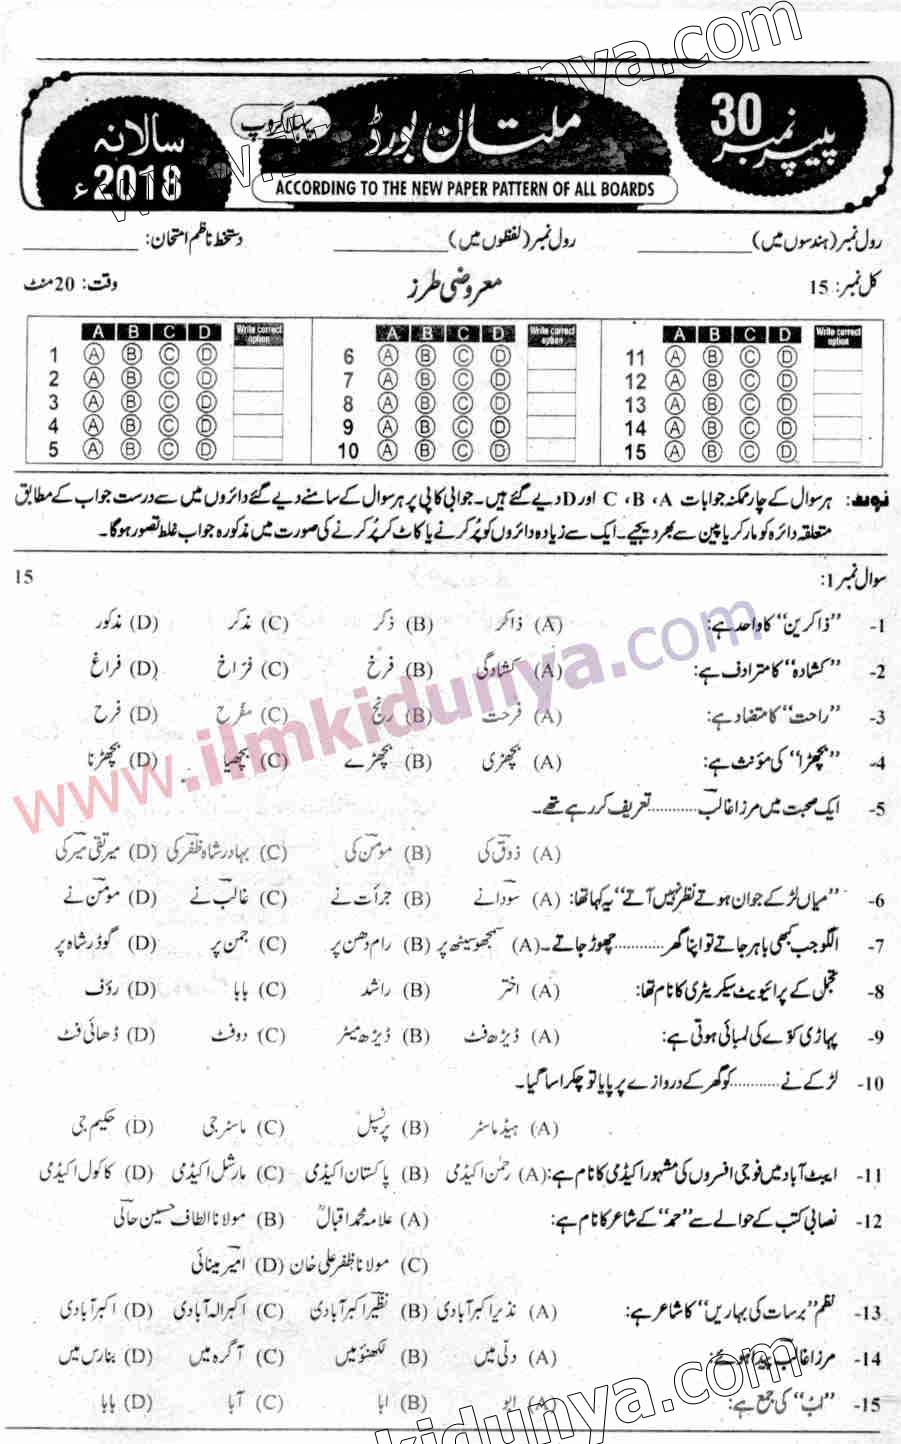 پیپر نمبر 30
ملتان بورڈ
پہلا گروپ
سالانہ 2018ء
ACCORDING TO THE NEW PAPER PATTERN OF ALL BOARDS
رول نمبر (ہندسوں میں) ____________ رول نمبر (لفظوں میں) ____________ دستخط ناظم امتحان: ____________
کل نمبر: 15 معروضی طرز وقت: 20 منٹ
A B C D Write correct option A B C D Write correct option A B C D Write correct option
1 A B C D 6 A B C D 11 A B C D
2 A B C D 7 A B C D 12 A B C D
3 A B C D 8 A B C D 13 A B C D
4 A B C D 9 A B C D 14 A B C D
5 A B C D 10 A B C D 15 A B C D
نوٹ: ہر سوال کے چار ممکنہ جوابات C ،B ،A اور D دیے گئے ہیں۔ جوابی کاپی پر ہر سوال کے سامنے دیے گئے دائروں میں سے درست جواب کے مطابق
متعلقہ دائرہ کو مارکر یا پین سے بھر دیجیے۔ ایک سے زیادہ دائروں کو پُر کرنے یا کاٹ کر پُر کرنے کی صورت میں مذکورہ جواب غلط تصور ہوگا۔
سوال نمبر 1: 15
1- ’’ذاکرین‘‘ کا واحد ہے: (A) ذاکر (B) ذکر (C) مذکر (D) مذکور
2- ’’کشادہ‘‘ کا مترادف ہے: (A) کشادگی (B) فرخ (C) فراخ (D) فراغ
3- ’’راحت‘‘ کا متضاد ہے: (A) فرحت (B) رنج (C) مفرح (D) فرح
4- ’’بچھڑا‘‘ کی مؤنث ہے: (A) بچھڑی (B) بچھڑے (C) بچھیا (D) بچھڑنا
5- ایک صحبت میں مرزا غالب ............ تعریف کر رہے تھے۔
(A) ذوق کی (B) مومن کی (C) بہادر شاہ ظفر کی (D) میر تقی میر کی
6- ’’میاں لڑکے جوان ہوتے نظر نہیں آتے‘‘ یہ کہا تھا: (A) سودا نے (B) جرأت نے (C) غالب نے (D) مومن نے
7- الگو جب کبھی باہر جاتے تو اپنا گھر ............ چھوڑ جاتے۔ (A) سمجھو سیٹھ پر (B) رام دھن پر (C) جمن پر (D) گوڈر شاہ پر
8- تجمل کے پرائیویٹ سیکریٹری کا نام تھا: (A) اختر (B) راشد (C) بابا (D) رؤف
9- پہاڑی کوّے کی لمبائی ہوتی ہے: (A) ڈیڑھ فٹ (B) ڈیڑھ میٹر (C) دو فٹ (D) ڈھائی فٹ
10- لڑکے نے ............ کو گھر کے دروازے پر پایا تو چکرا سا گیا۔
(A) ہیڈ ماسٹر (B) پرنسپل (C) ماسٹر جی (D) حکیم جی
11- ایبٹ آباد میں فوجی افسروں کی مشہور اکیڈمی کا نام ہے: (A) رحمٰن اکیڈمی (B) پاکستان اکیڈمی (C) مارشل اکیڈمی (D) کاکول اکیڈمی
12- نصابی کتب کے حوالے سے ’’حمد‘‘ کے شاعر کا نام ہے: (A) علامہ محمد اقبالؒ (B) مولانا الطاف حسین حالی
(C) مولانا ظفر علی خان (D) امیر مینائی
13- نظم ’’برسات کی بہاریں‘‘ کا شاعر ہے: (A) نذیر اکبر آبادی (B) نظیر اکبر آبادی (C) اکبر الہ آبادی (D) اکبر آبادی
14- مرزا غالب پیدا ہوئے: (A) دلّی میں (B) لکھنؤ میں (C) آگرہ میں (D) بنارس میں
15- ’’اب‘‘ کی جمع ہے: (A) ابو (B) ابا (C) آبا (D) بابا
www.ilmkidunya.com